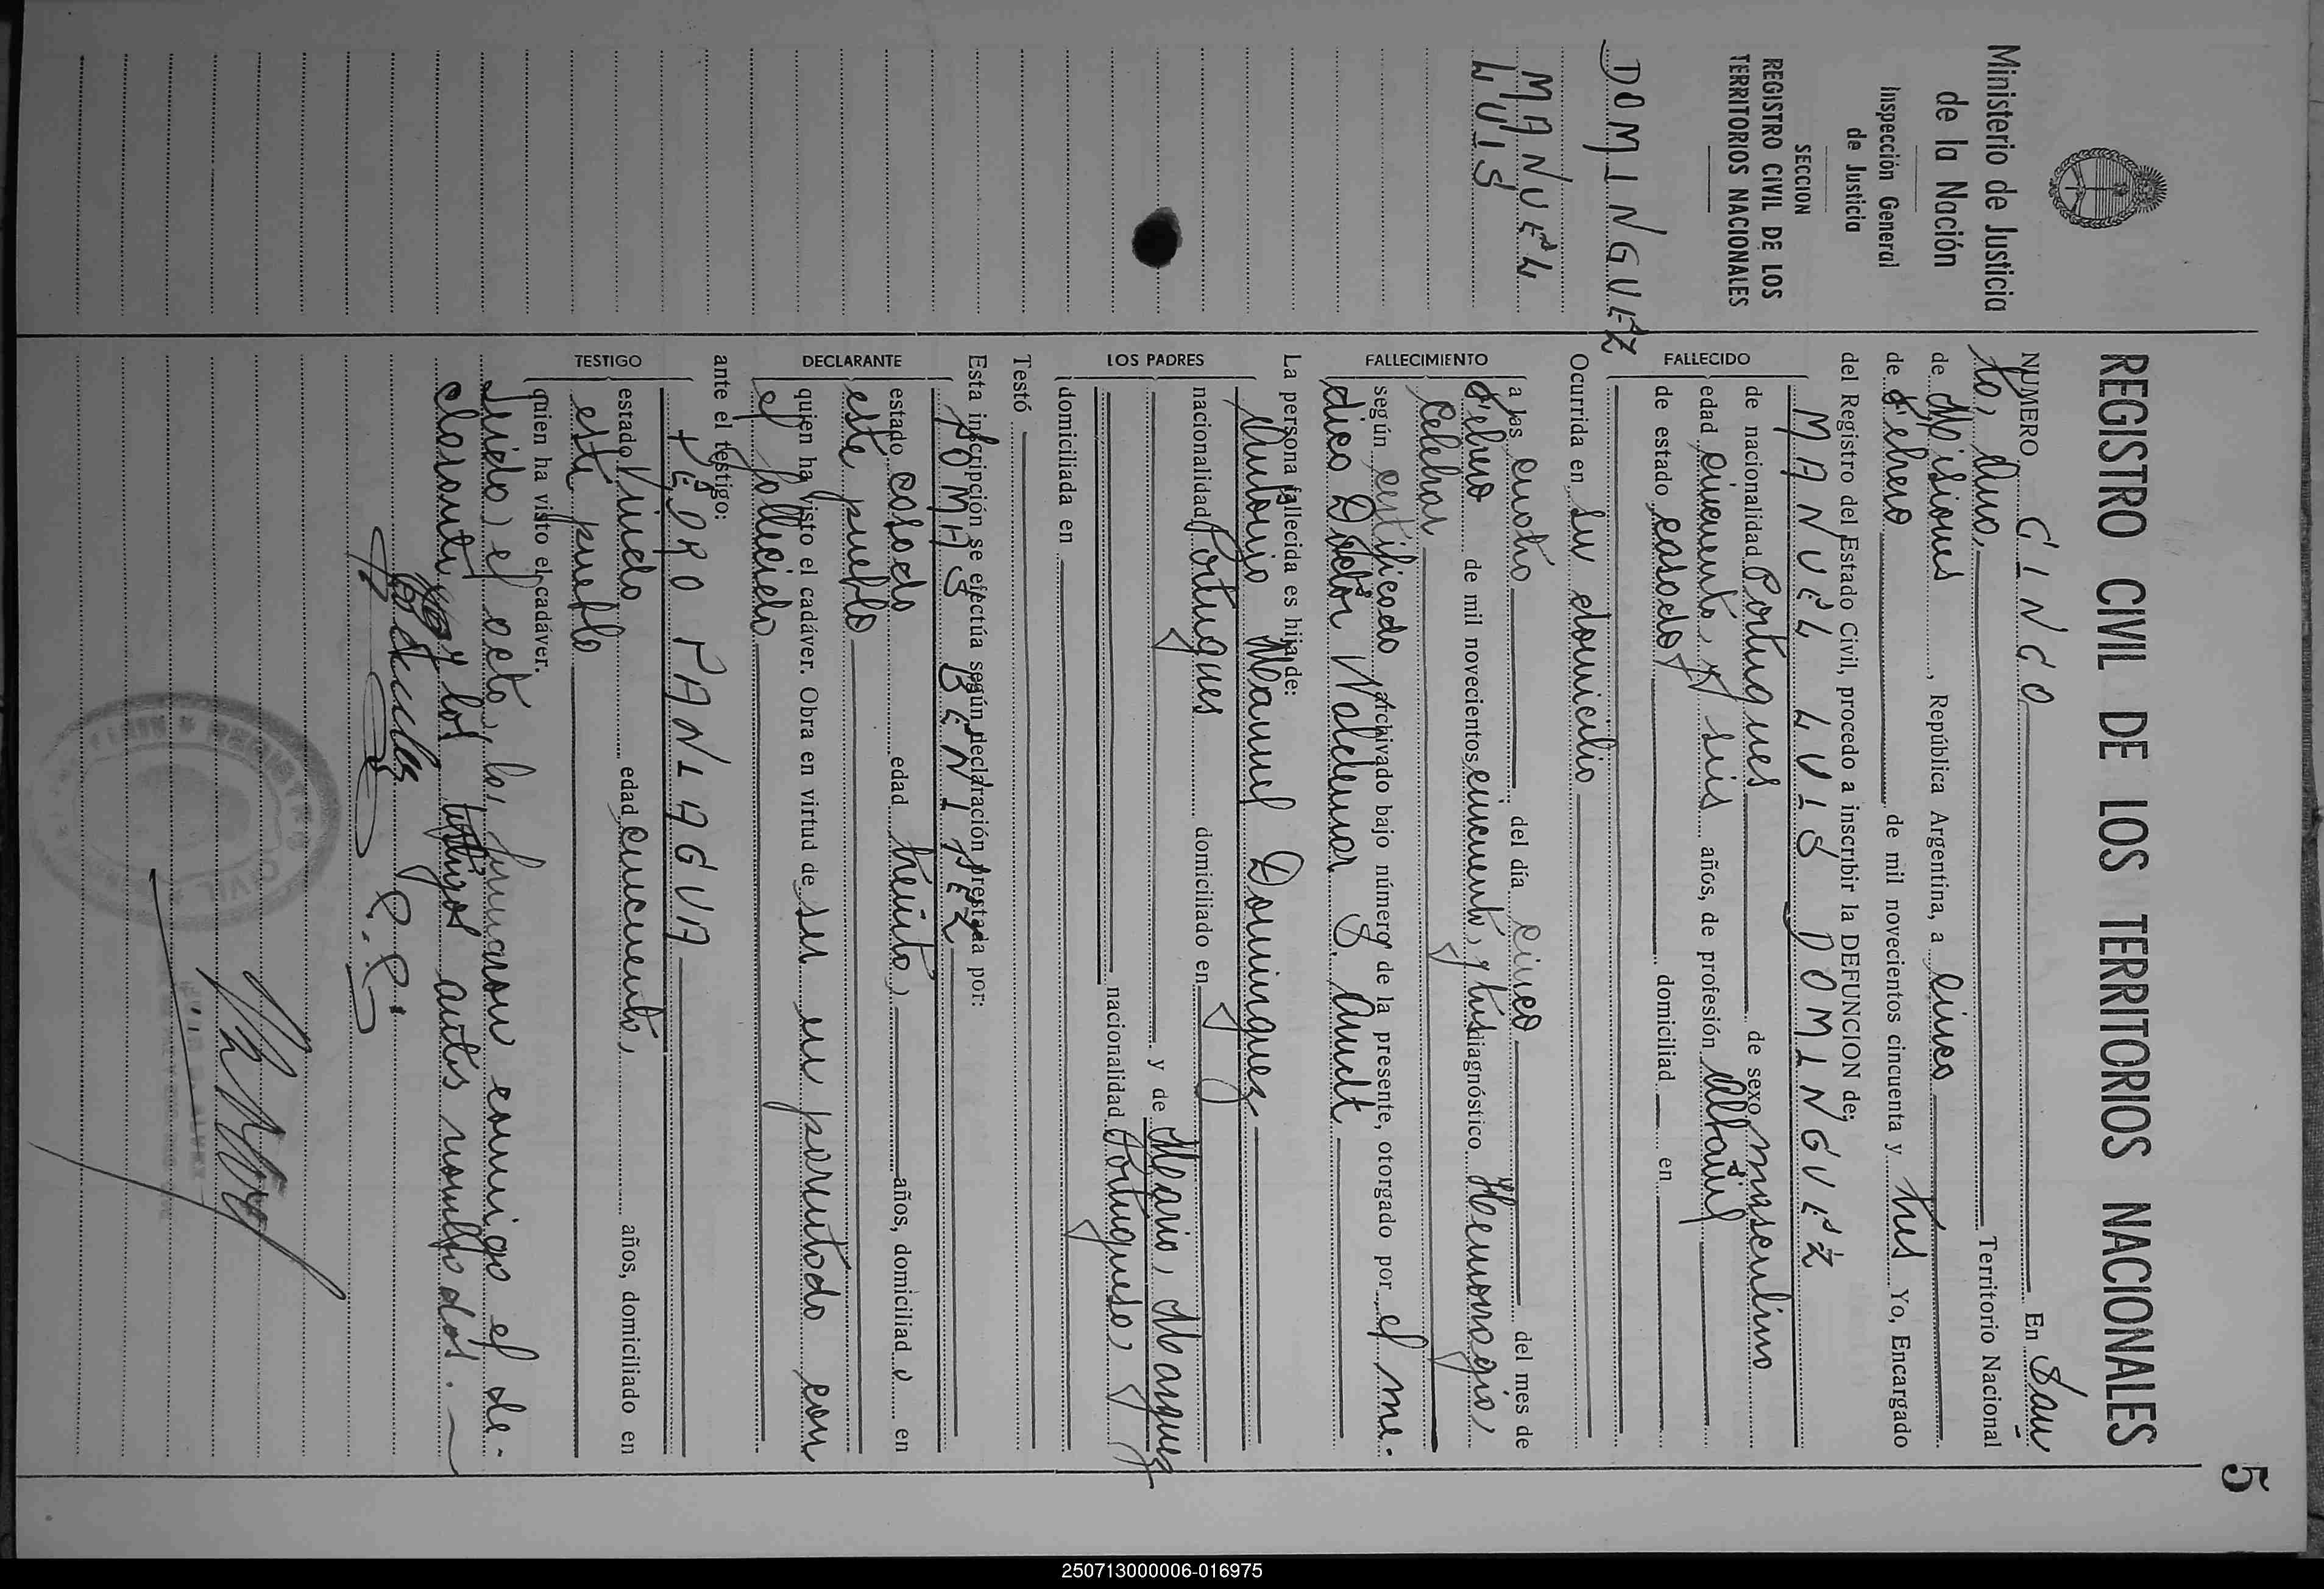 5
Ministerio de Justicia
de la Nación
Inspección General
de Justicia
SECCION
REGISTRO CIVIL DE LOS
TERRITORIOS NACIONALES
DOMINGUEZ
MANUEL
LUIS
REGISTRO CIVIL DE LOS TERRITORIOS NACIONALES
NUMERO CINCO En San-
to, Ana, Territorio Nacional
de Misiones, República Argentina, a cinco
de Febrero de mil novecientos cincuenta y tres Yo, Encargado
del Registro del Estado Civil, procedo a inscribir la DEFUNCION de:
FALLECIDO
MANUEL LUIS DOMINGUEZ
de nacionalidad Portugues de sexo masculino
edad cincuenta, y seis años, de profesión Albañil
de estado casado, domiciliad en
Ocurrida en su domicilio
FALLECIMIENTO
a las cuatro del día cinco del mes de
Febrero de mil novecientos cincuenta, y tres diagnóstico Hemorragia,
Celebral
según certificado archivado bajo número de la presente, otorgado por el me-
dico Doctor Valdemar S.
La persona fallecida es hija de:
LOS PADRES
Antonio Manuel Dominguez
nacionalidad Portugues domiciliado en
y de Maria, Marquez
nacionalidad Portuguesa,
domiciliada en
Testó
Esta inscripción se efectúa según declaración prestada por:
DECLARANTE
TOMAS BENITEZ
estado casado edad treinta, años, domiciliad o en
este pueblo
quien ha visto el cadáver. Obra en virtud de ser un parentado con
el fallecido
ante el testigo:
TESTIGO
PEDRO PANIAGUA
estado viudo edad cincuenta, años, domiciliado en
este pueblo
quien ha visto el cadáver.
Leida, el acta, la, firmaron conmigo el de-
clarante y los testigos antes nombrados.
REGISTRO CIVIL
250713000006-016975